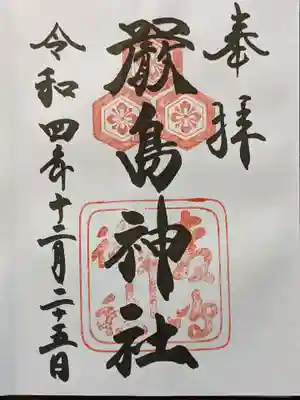 奉拝
厳島神社
令和四年十二月二十五日